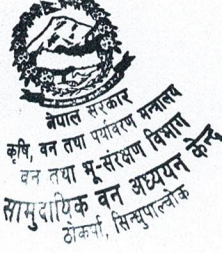 नेपाल सरकार
कृषि, वन तथा पर्यावरण मन्त्रालय
वन तथा भू-संरक्षण विभाग
सामुदायिक वन अध्ययन केन्द्र
ठोकर्पा, सिन्धुपाल्चोक